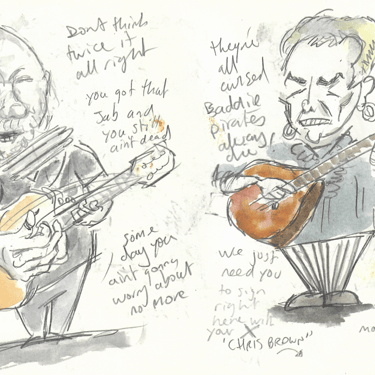 Dont think
twice it
all right
you got that
Jab and
you still
aint dead
some
day you
aint gonna
worry about
no more
they're
all cursed
Baddie
Pirates
always
die
We just
need you
to sign
right
here with
your X
"CHRIS BROWN"